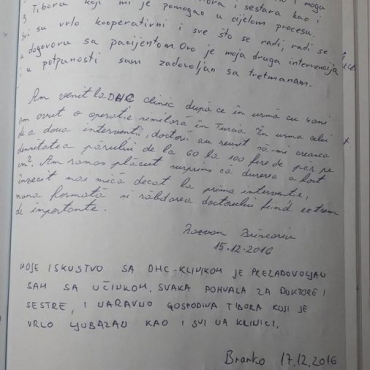 3 Tibora koji mi je pomogao u cijelom procesu.
su vrlo kooperativni i sve što se radi, radi se
dogovoru sa pacijentom. Ovo je moja druga intervencija
u potpunosti sam zadovoljan sa tretmanom.
Am venit la DHC clinic după ce în urmă cu
am avut o operație nereușită în Turcia. În urma celei
de a doua intervenții, doctorii au reușit să-mi crească
densitatea părului de la 60 la 100 fire de păr pe
cm². Am rămas plăcut surprins că durerea a fost
mai mică decât la prima intervenție,
formată și răbdarea doctorului fiind extrem
de importante.
15.12.2016
MOJE ISKUSTVO SA DHC-KLINIKOM JE PREZADOVOLJAN
SAM SA UČINKOM, SVAKA POHVALA ZA DOKTORE I
SESTRE, I NARAVNO GOSPODINA TIBORA KOJI JE
VRLO LJUBAZAN KAO I SVI NA KLINICI.
Branko 17.12.2016